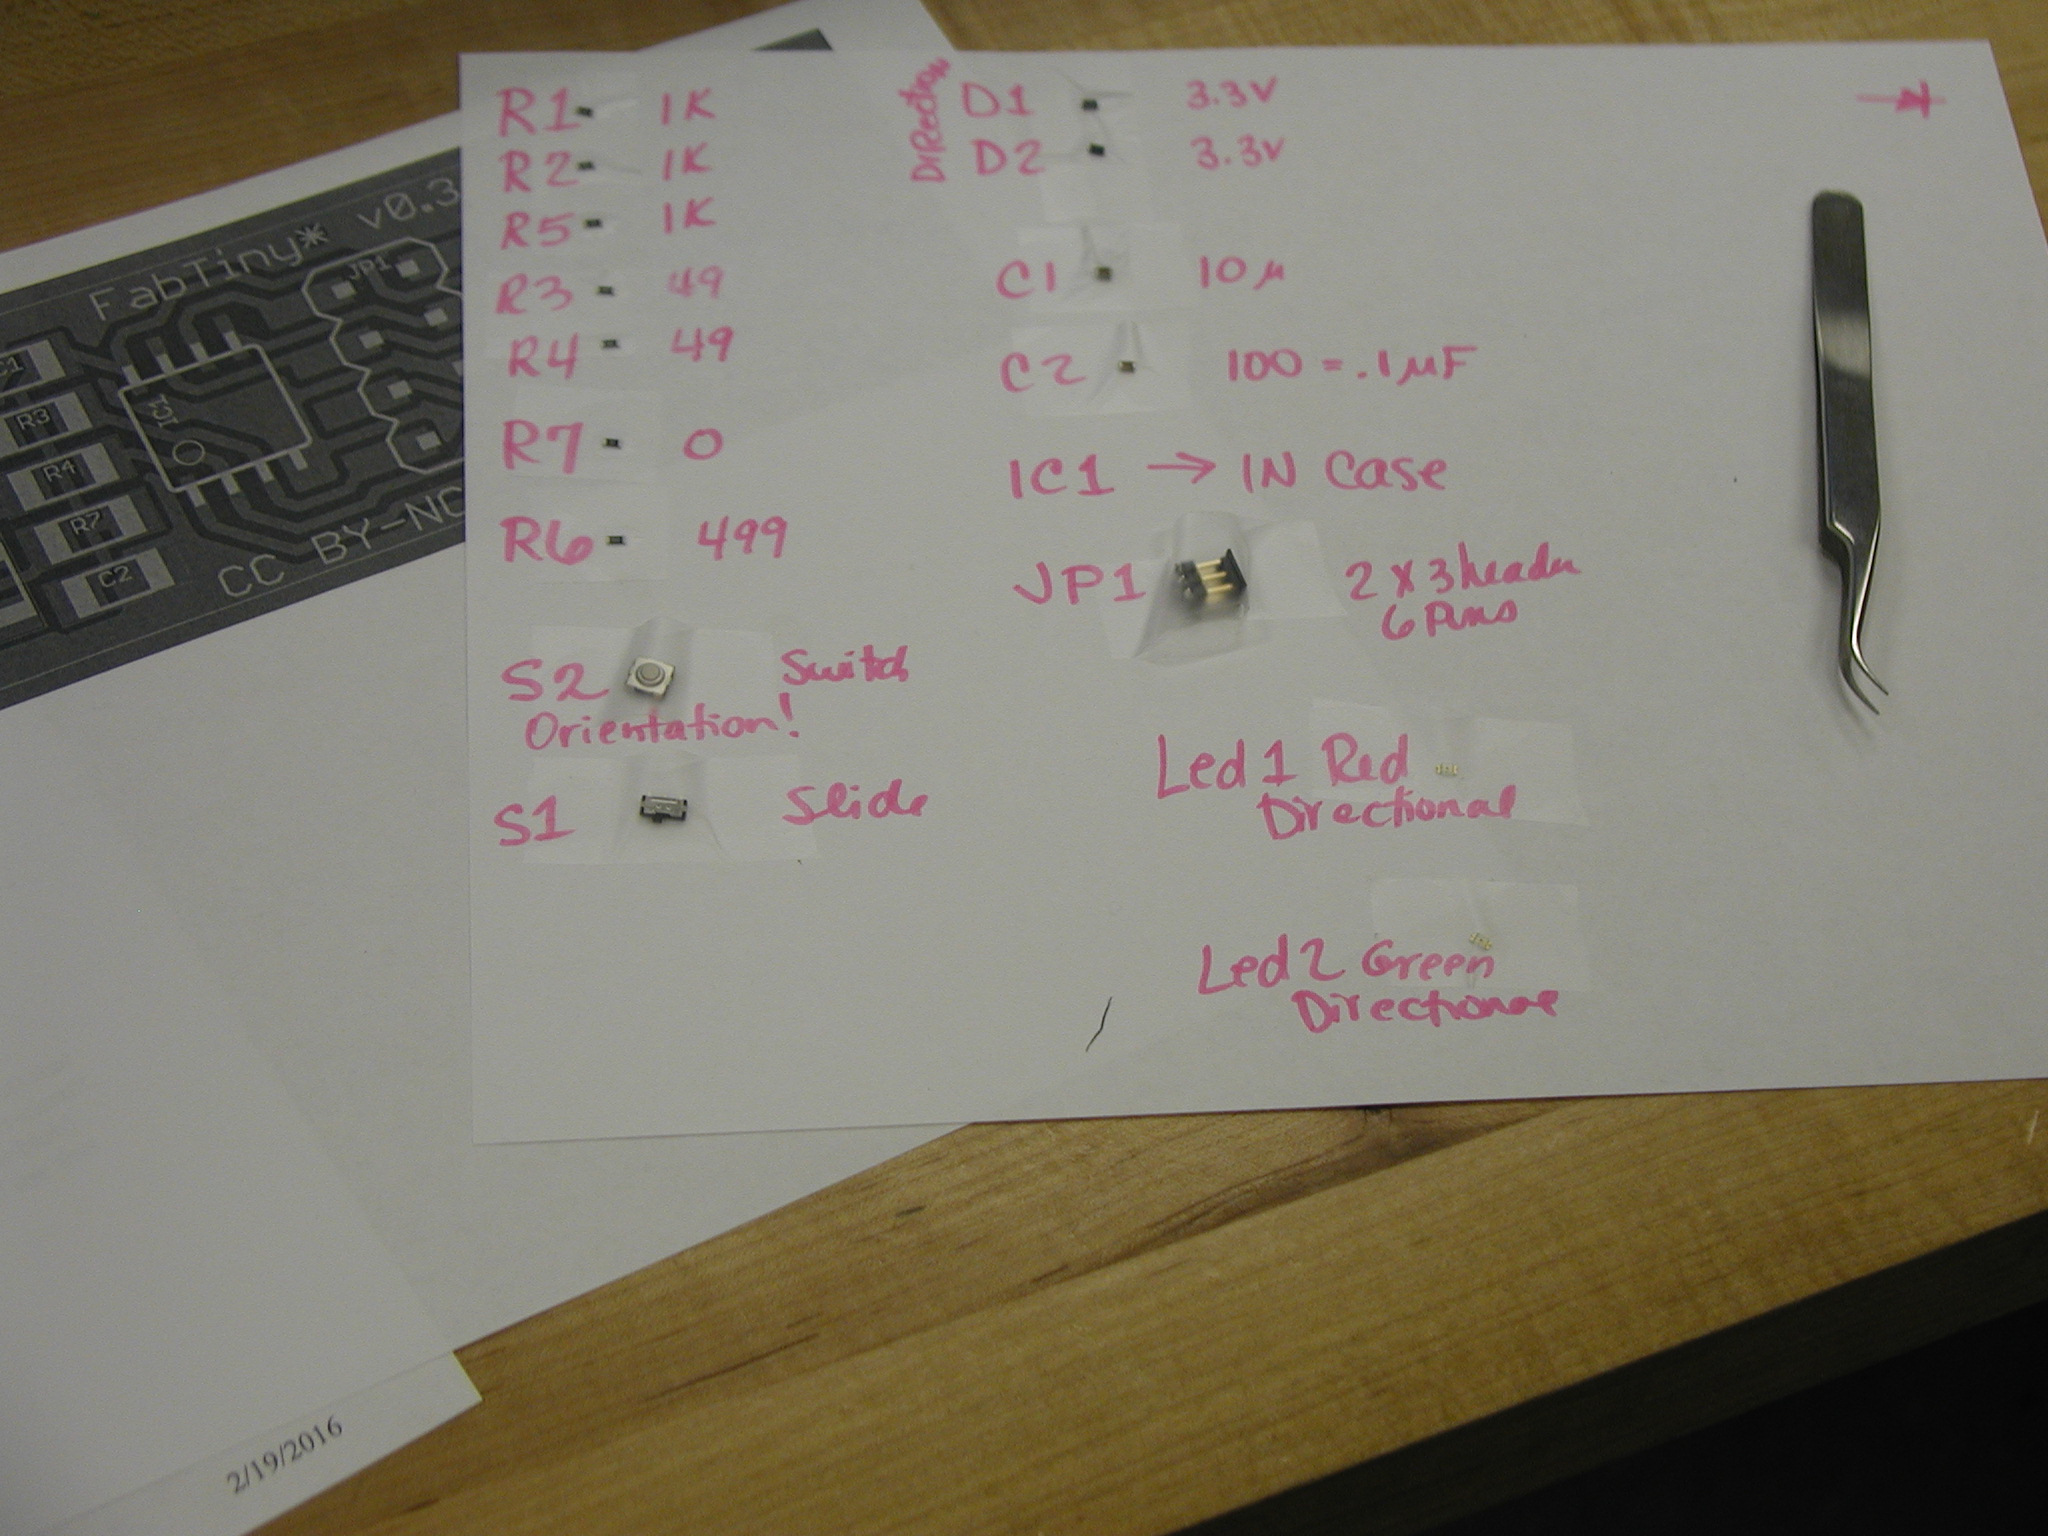 R1 1K
R2 1K
R5 1K
R3 49
R4 49
R7 0
R6 499
S2 Switch
Orientation!
S1 Slide
DIRection
D1 3.3V
D2 3.3V
C1 10µ
C2 100 = .1µF
IC1 → IN Case
JP1 2 X 3 header
6 Pins
Led 1 Red
Directional
Led 2 Green
Directional
FabTiny* v0.3
JP1
C1
R3
IC1
R4
R7
C2
CC BY-NC
2/19/2016